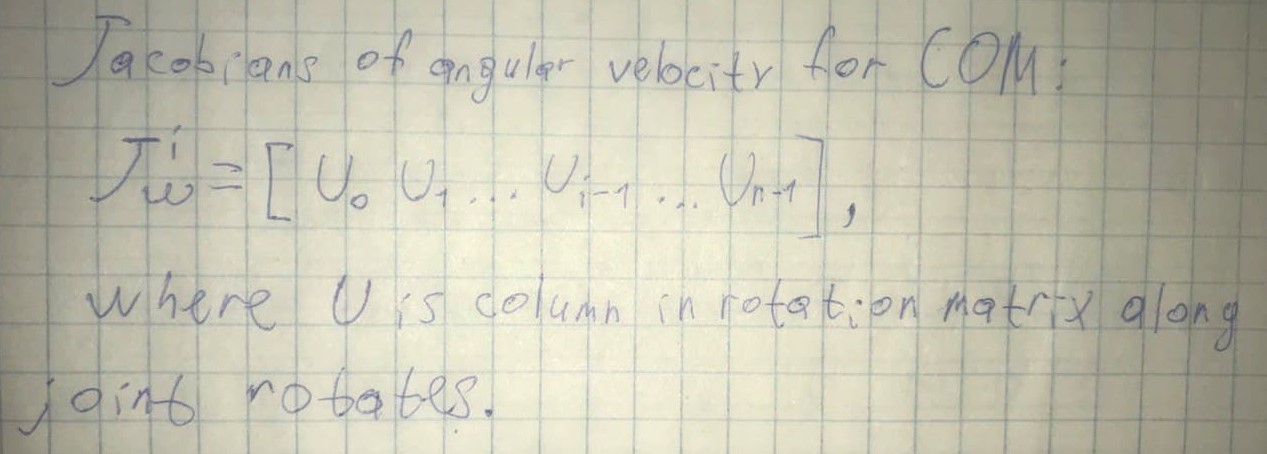 Jacobians of angular velocity for COM:
J_w^i = [ U_0 U_1 ... U_{i-1} ... U_{n-1} ],
where U is column in rotation matrix along
joint rotates.